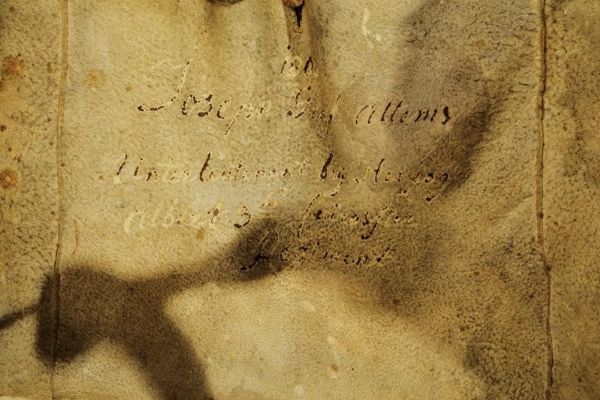 Joseph Graf Attems
Unterleutenant by Herzog
Albert 3te
Regiment